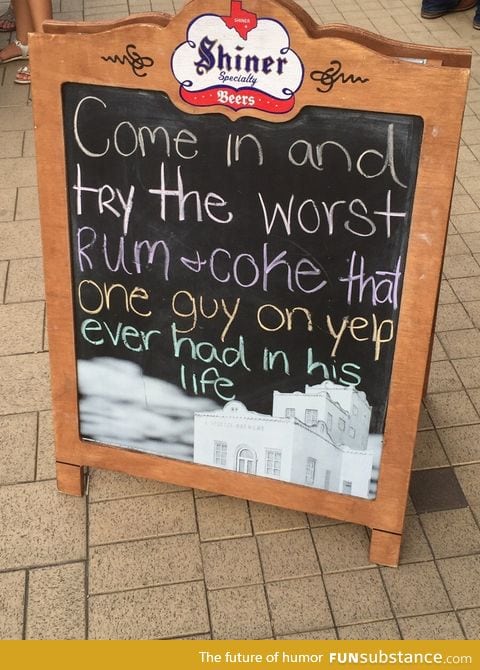 SHINER
Shiner
Specialty
Beers
Come in and
try the worst
Rum + coke that
one guy on yelp
ever had in his
life
The future of humor FUNsubstance.com